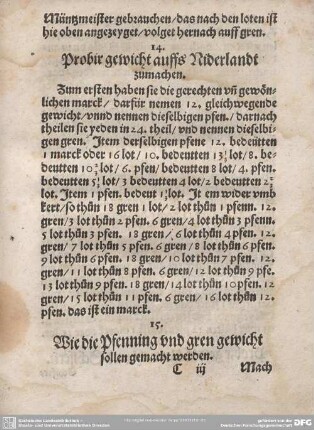 Müntzmeister gebrauchen/ das nach den loten ist
hie oben angezeyget/ volget hernach auff gren.
14.
Probir gewicht auffs Niderlandt
zumachen.
Zum ersten haben sie die gerechten vñ gewön-
lichen marck/ darfür nemen 12. gleichwegende
gewicht/ vnnd nennen dieselbigen pfen./ darnach
theilen sie yeden in 24. theil/ vnd nennen dieselbi-
gen gren. Item derselbigen pfene 12. bedeutten
1 marck oder 16 lot/ 10. bedeutten 13⅓ lot/ 8. be-
deutten 10⅔ lot/ 6. pfen/ bedeutten 8 lot/ 4. pfen.
bedeutten 5⅓ lot/ 3 bedeutten 4 lot/ 2 bedeutten 2⅔
lot. Item 1 pfen. bedeut 1⅓ lot. It em wider vmb
kert/ so thün 18 gren 1 lot/ 2 lot thün 1 pfenn. 12.
gren/ 3 lot thün 2 pfen. 6 gren/ 4 lot thün 3 pfenn.
5 lot thün 3 pfen. 18 gren/ 6 lot thün 4 pfen. 12.
gren/ 7 lot thün 5 pfen. 6 gren/ 8 lot thün 6 pfen.
9 lot thün 6 pfen. 18 gren/ 10 lot thün 7 pfen. 12.
gren/ 11 lot thün 8 pfen. 6 gren/ 12 lot thün 9 pfe.
13 lot thün 9 pfen. 18 gren/ 14 lot thün 10 pfen. 12.
gren/ 15 lot thün 11 pfen. 6 gren/ 16 lot thün 12.
pfen. das ist ein marck.
15.
Wie die Pfenning vnd gren gewicht
sollen gemacht werden.
C iij Mach